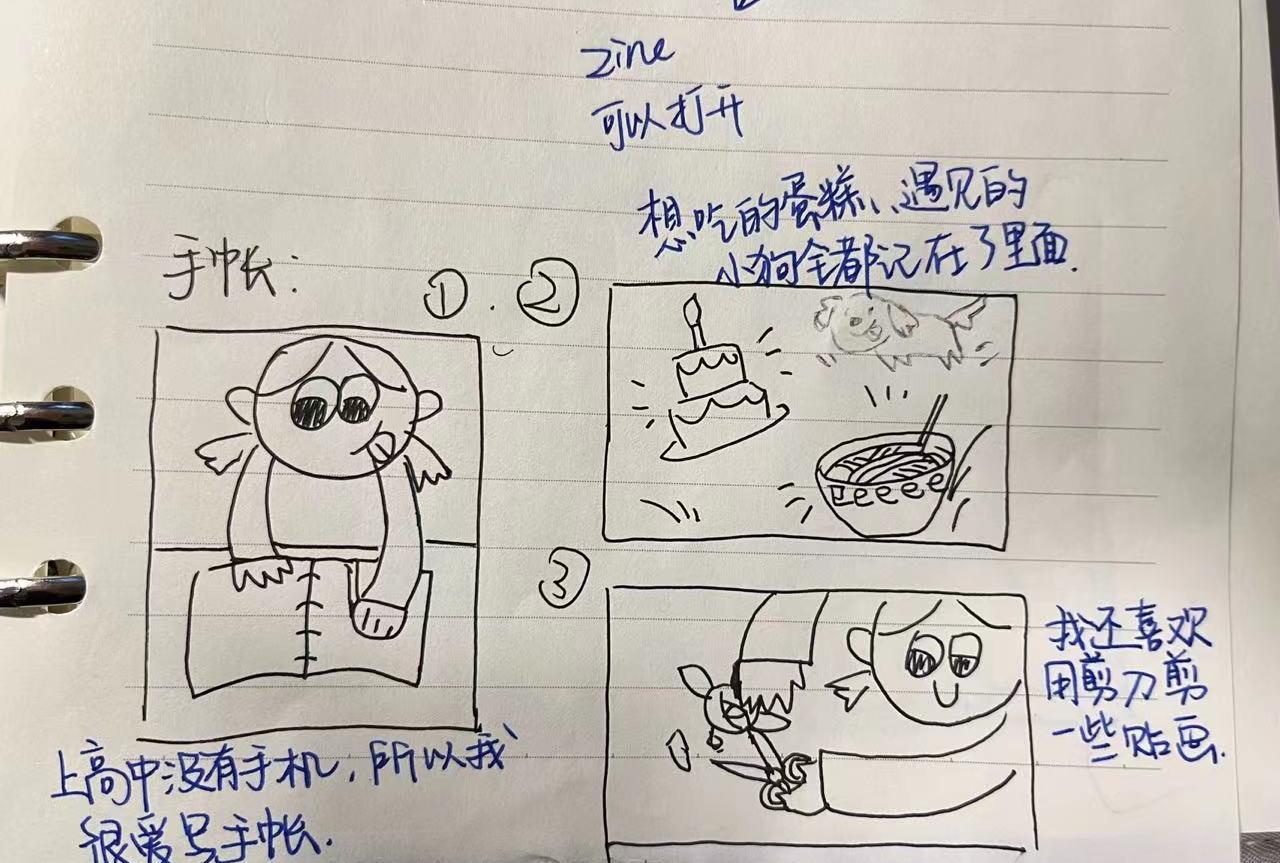 zine
可以打开
想吃的蛋糕、遇见的
小狗全都记在了里面.
手帐:
①.②
上高中没有手机，所以我
很爱写手帐.
③
我还喜欢
用剪刀剪
一些贴画.